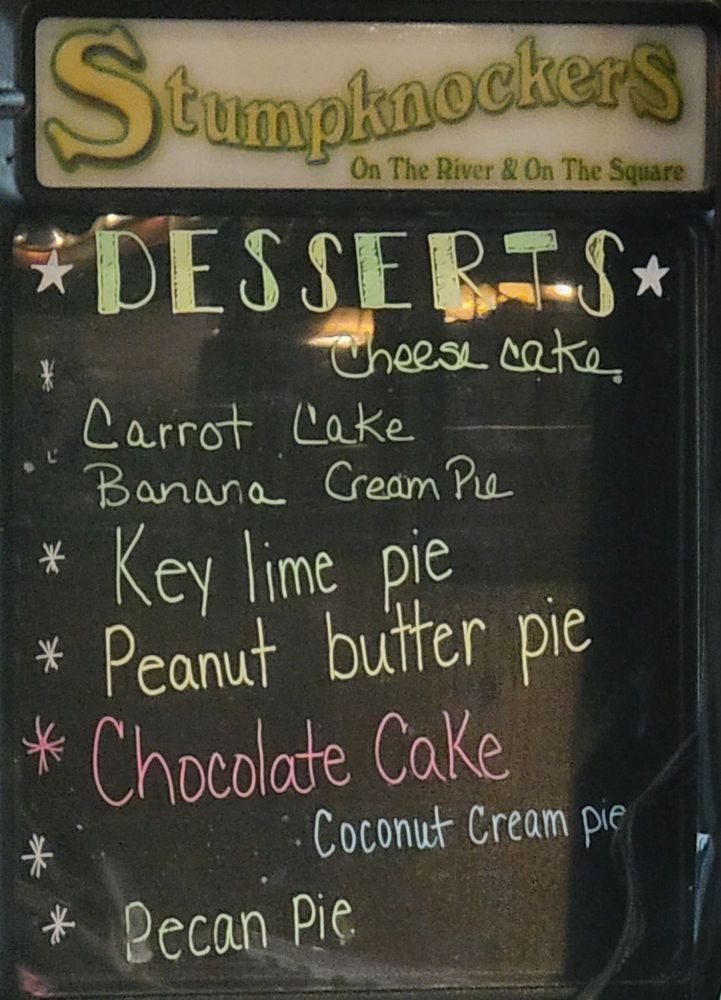 Stumpknockers
On The River & On The Square
DESSERTS
Cheese cake
Carrot Cake
Banana Cream Pie
* Key lime pie
* Peanut butter pie
* Chocolate Cake
Coconut Cream pie
* Pecan Pie